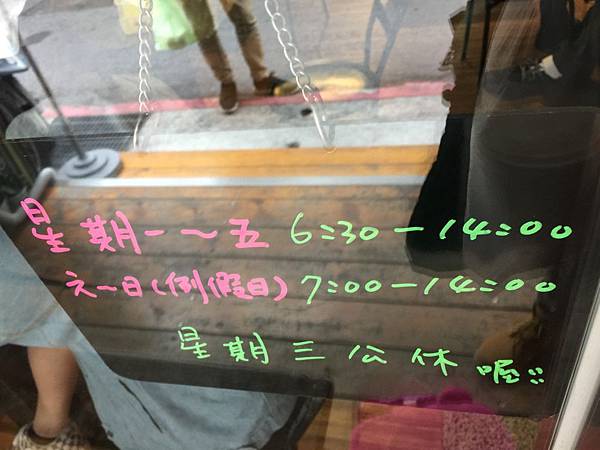 星期一~五 6:30-14:00
六-日(例假日) 7:00-14:00
星期三公休喔!!